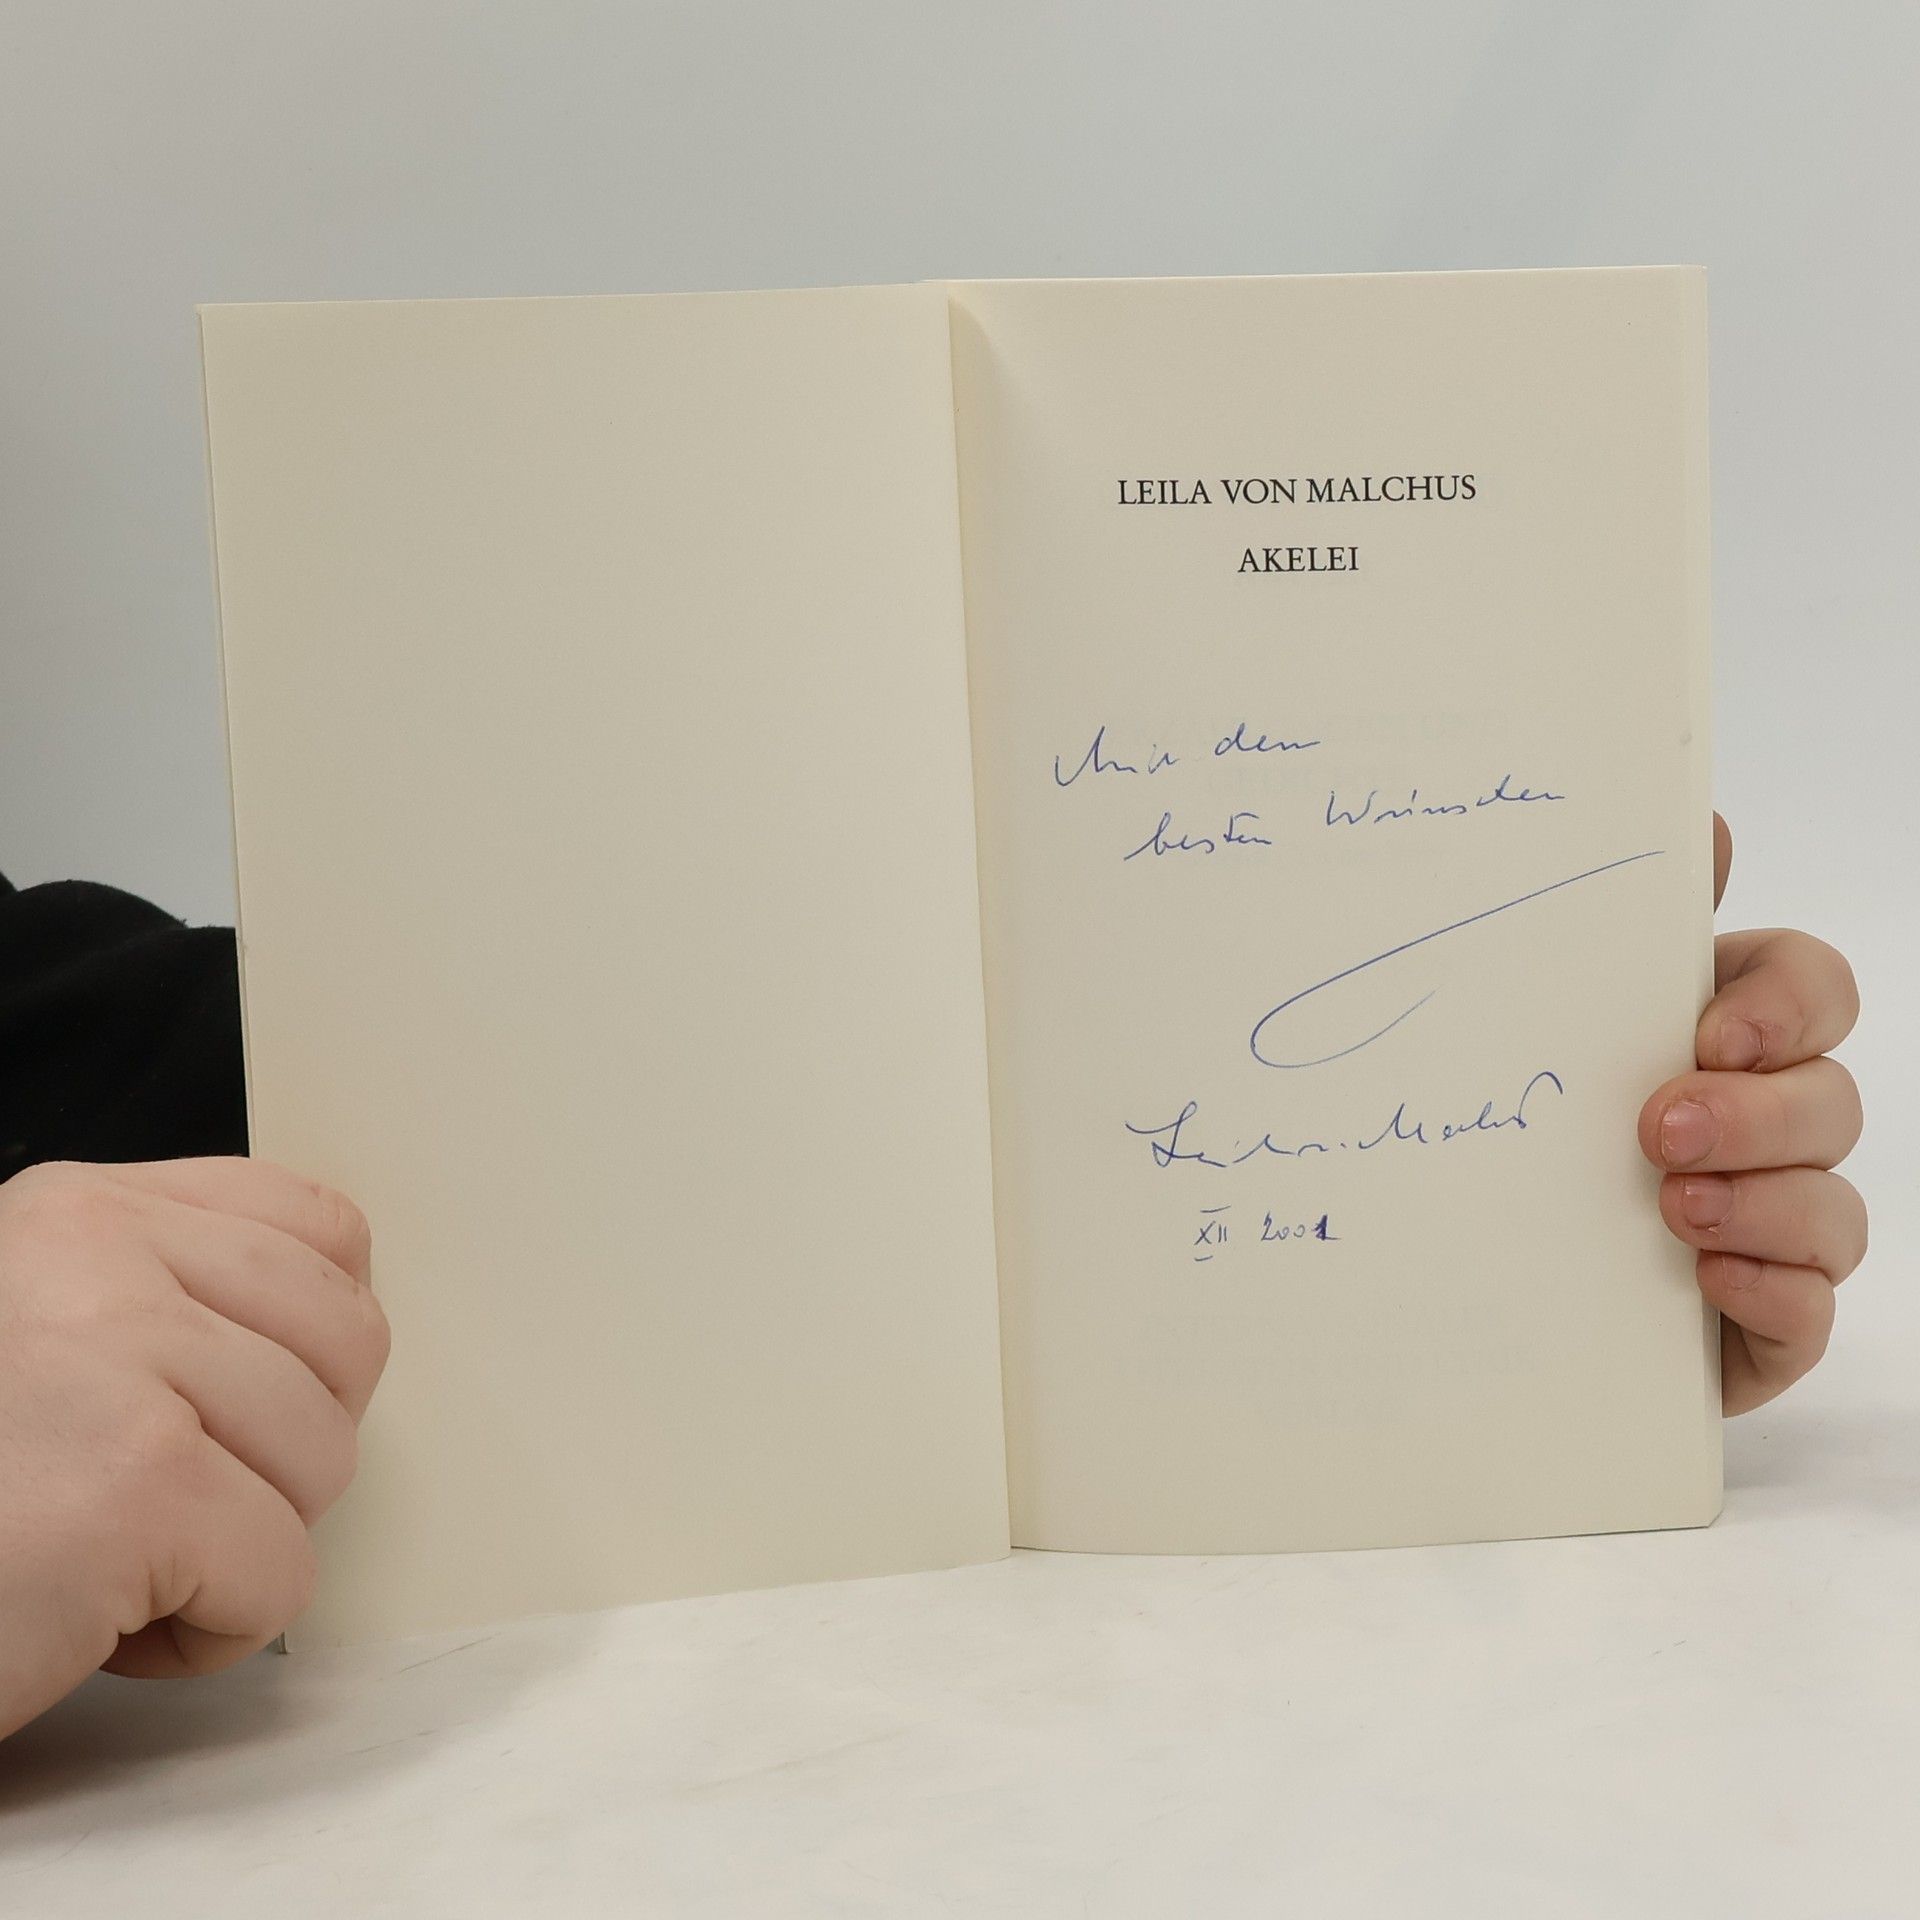 LEILA VON MALCHUS
AKELEI
Mit den
besten Wünschen
Leila v. Malchus
XII 2001